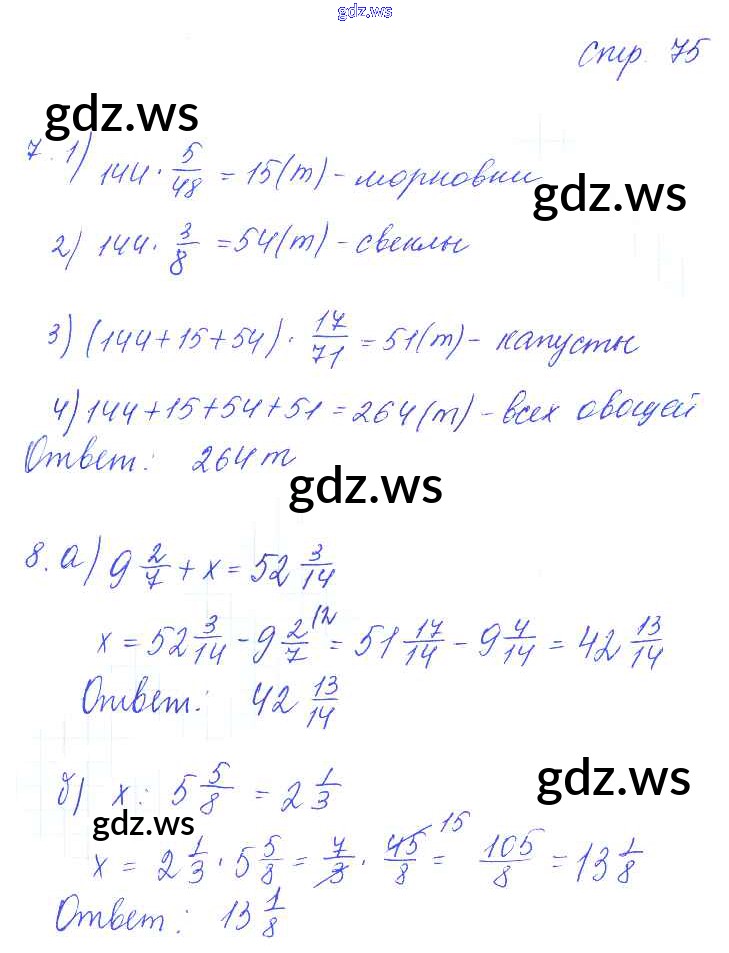 gdz.ws
Стр. 75
gdz.ws
7. 1) 144 · 5/48 = 15(т) - морковки
gdz.ws
2) 144 · 3/8 = 54(т) - свеклы
3) (144+15+54) · 17/71 = 51(т) - капусты
4) 144+15+54+51 = 264(т) - всех овощей
Ответ: 264 т
gdz.ws
8. а) 9 2/7 + x = 52 3/14
x = 52 3/14 - 9 2/7 /2 = 51 17/14 - 9 4/14 = 42 13/14
Ответ: 42 13/14
gdz.ws
б) x : 5 5/8 = 2 1/3
gdz.ws
x = 2 1/3 · 5 5/8 = 7/3 · 45/8 15 = 105/8 = 13 1/8
Ответ: 13 1/8